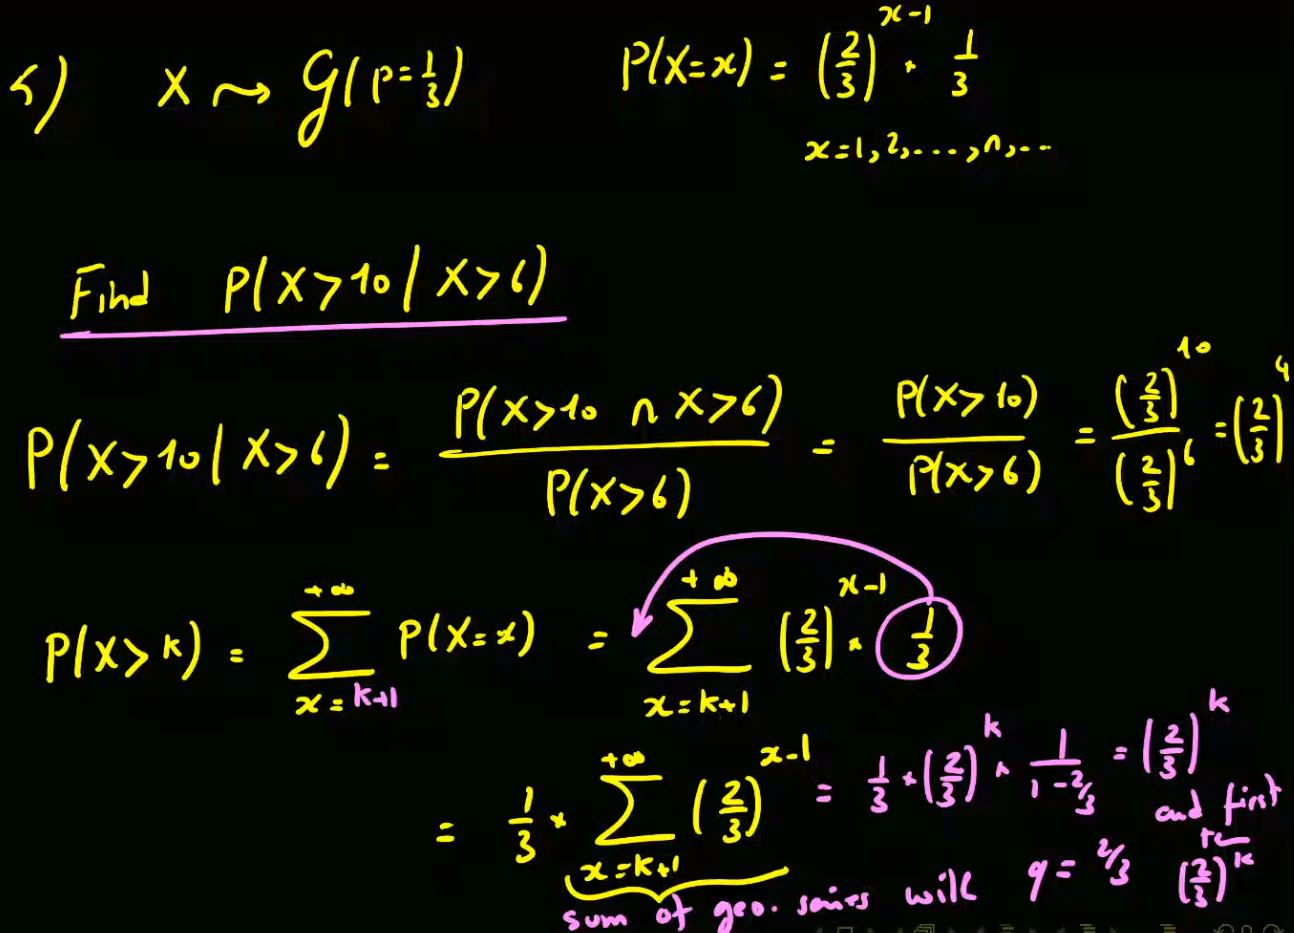 5) X ⇝ G(p=1/3) P(X=x) = (2/3)^(x-1) · 1/3
x=1,2,...,n,...
Find P(X>10 | X>6)
P(X>10 | X>6) = P(X>10 ∩ X>6) / P(X>6) = P(X>10) / P(X>6) = (2/3)^10 / (2/3)^6 = (2/3)^4
P(X>k) = Σ_{x=k+1}^{+∞} P(X=x) = Σ_{x=k+1}^{+∞} (2/3)^(x-1) * 1/3
= 1/3 * Σ_{x=k+1}^{+∞} (2/3)^(x-1) = 1/3 * (2/3)^k * 1/(1-2/3) = (2/3)^k
sum of geo. series with q = 2/3 and first (2/3)^k